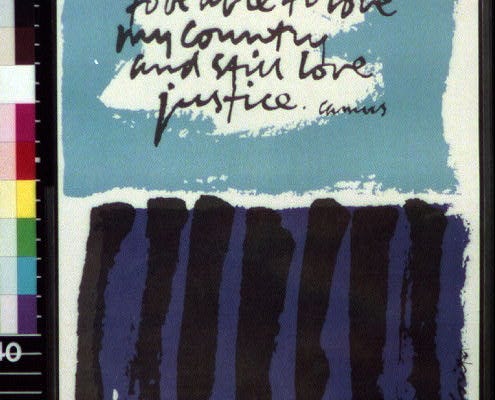 to be able to love
my country
and still love
justice. camus
40